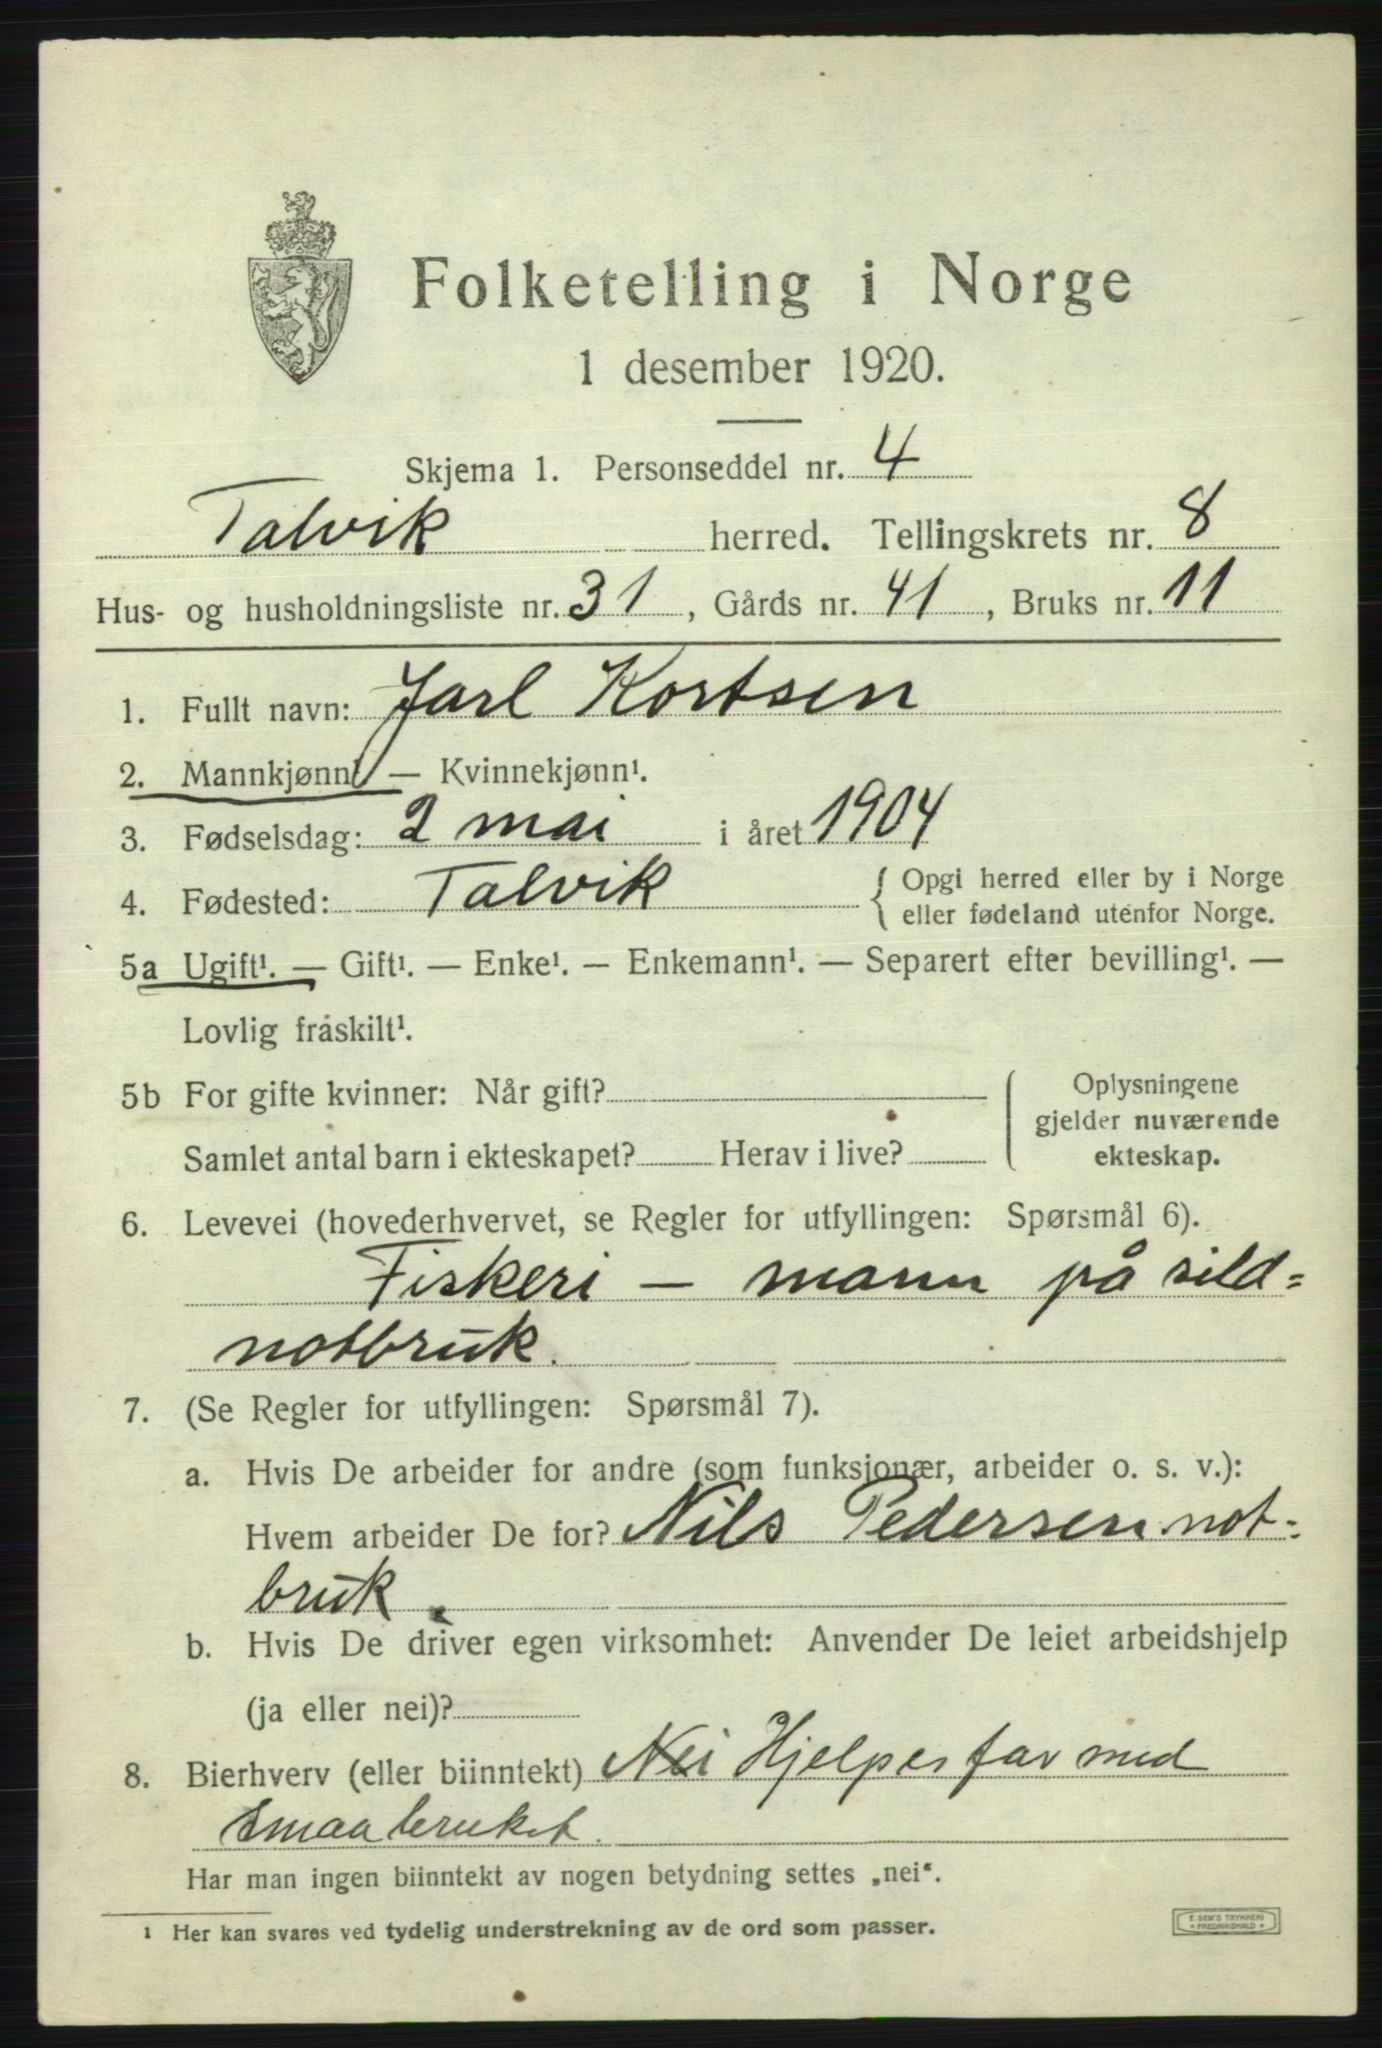 Folketelling i Norge
1 desember 1920.
Skjema 1. Personseddel nr. 4
Talvik herred. Tellingskrets nr. 8
Hus- og husholdningsliste nr. 31, Gårds nr. 41, Bruks nr. 11
1. Fullt navn: Jarl Kortsen
2. Mannkjønn¹ — Kvinnekjønn¹.
3. Fødselsdag: 2 mai i året 1904
4. Fødested: Talvik { Opgi herred eller by i Norge
eller fødeland utenfor Norge.
5a Ugift¹. — Gift¹. — Enke¹. — Enkemann¹. — Separert efter bevilling¹. —
Lovlig fraskilt¹.
5b For gifte kvinner: Når gift? ( Oplysningene
gjelder nuværende
Samlet antal barn i ekteskapet? Herav i live? ekteskap.
6. Levevei (hovederhvervet, se Regler for utfyllingen: Spørsmål 6).
Fiskeri — mann på sild=
notbruk.
7. (Se Regler for utfyllingen: Spørsmål 7).
a. Hvis De arbeider for andre (som funksjonær, arbeider o. s. v.):
Hvem arbeider De for? Nils Pedersen not-
bruk.
b. Hvis De driver egen virksomhet: Anvender De leiet arbeidshjelp
(ja eller nei)?
8. Bierhverv (eller biinntekt) Nei Hjelper far med
Smaabruket.
Har man ingen biinntekt av nogen betydning settes „nei“.
1 Her kan svares ved tydelig understrekning av de ord som passer.
E. SEM'S TRYKKERI
FREDRIKSHALD